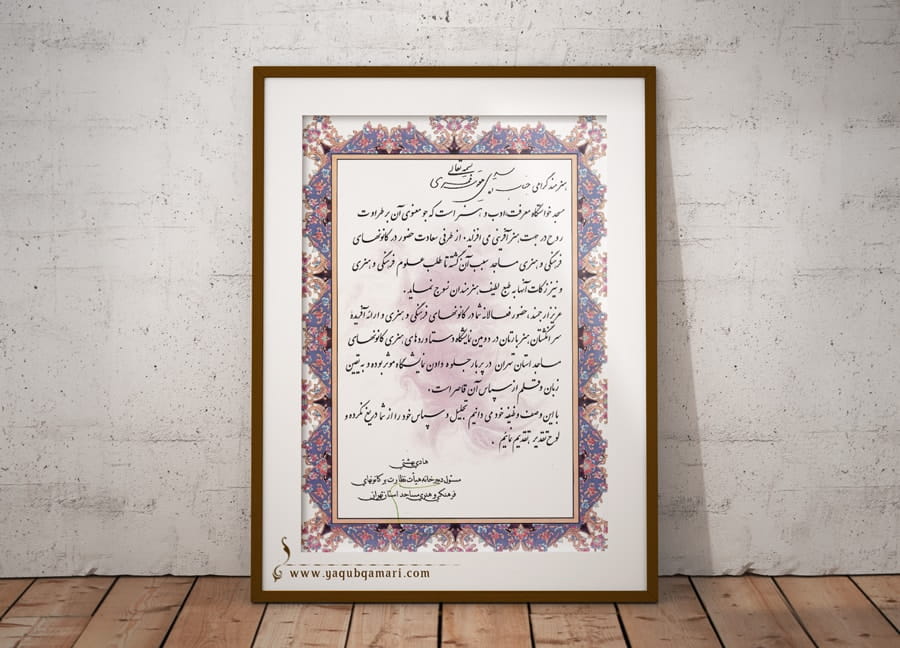 بسمه تعالی
هنرمند گرامی جناب آقای یعقوب قمری
مسجد خواستگاه معرفت، ادب و هنر است که جو معنوی آن بر طراوت
روح در جهت هنر آفرینی می افزاید. از طرفی سعادت حضور در کانونهای
فرهنگی و هنری مساجد سبب آن گشته تا طلب علوم فرهنگی و هنری
و نیز زکات آنها به طبع لطیف هنرمندان نسوج نماید.
عزیز ارجمند، حضور فعالانه شما در کانونهای فرهنگی و هنری و ارائه آفریدۀ
سر انگشتان هنر بارتان در دومین نمایشگاه دستاوردهای هنری کانونهای
مساجد استان تهران در پربار جلوه دادن نمایشگاه موثر بوده و به یقین
زبان و قلم از سپاس آن قاصر است.
با این وصف وظیفه خود می دانیم تجلیل و سپاس خود را از شما دریغ نکرده و
لوح تقدیر تقدیم نمائیم.
هادی بهشتی
مسئول دبیرخانه هیأت نظارت بر کانونهای
فرهنگی و هنری مساجد استان تهران
www.yaqubqamari.com